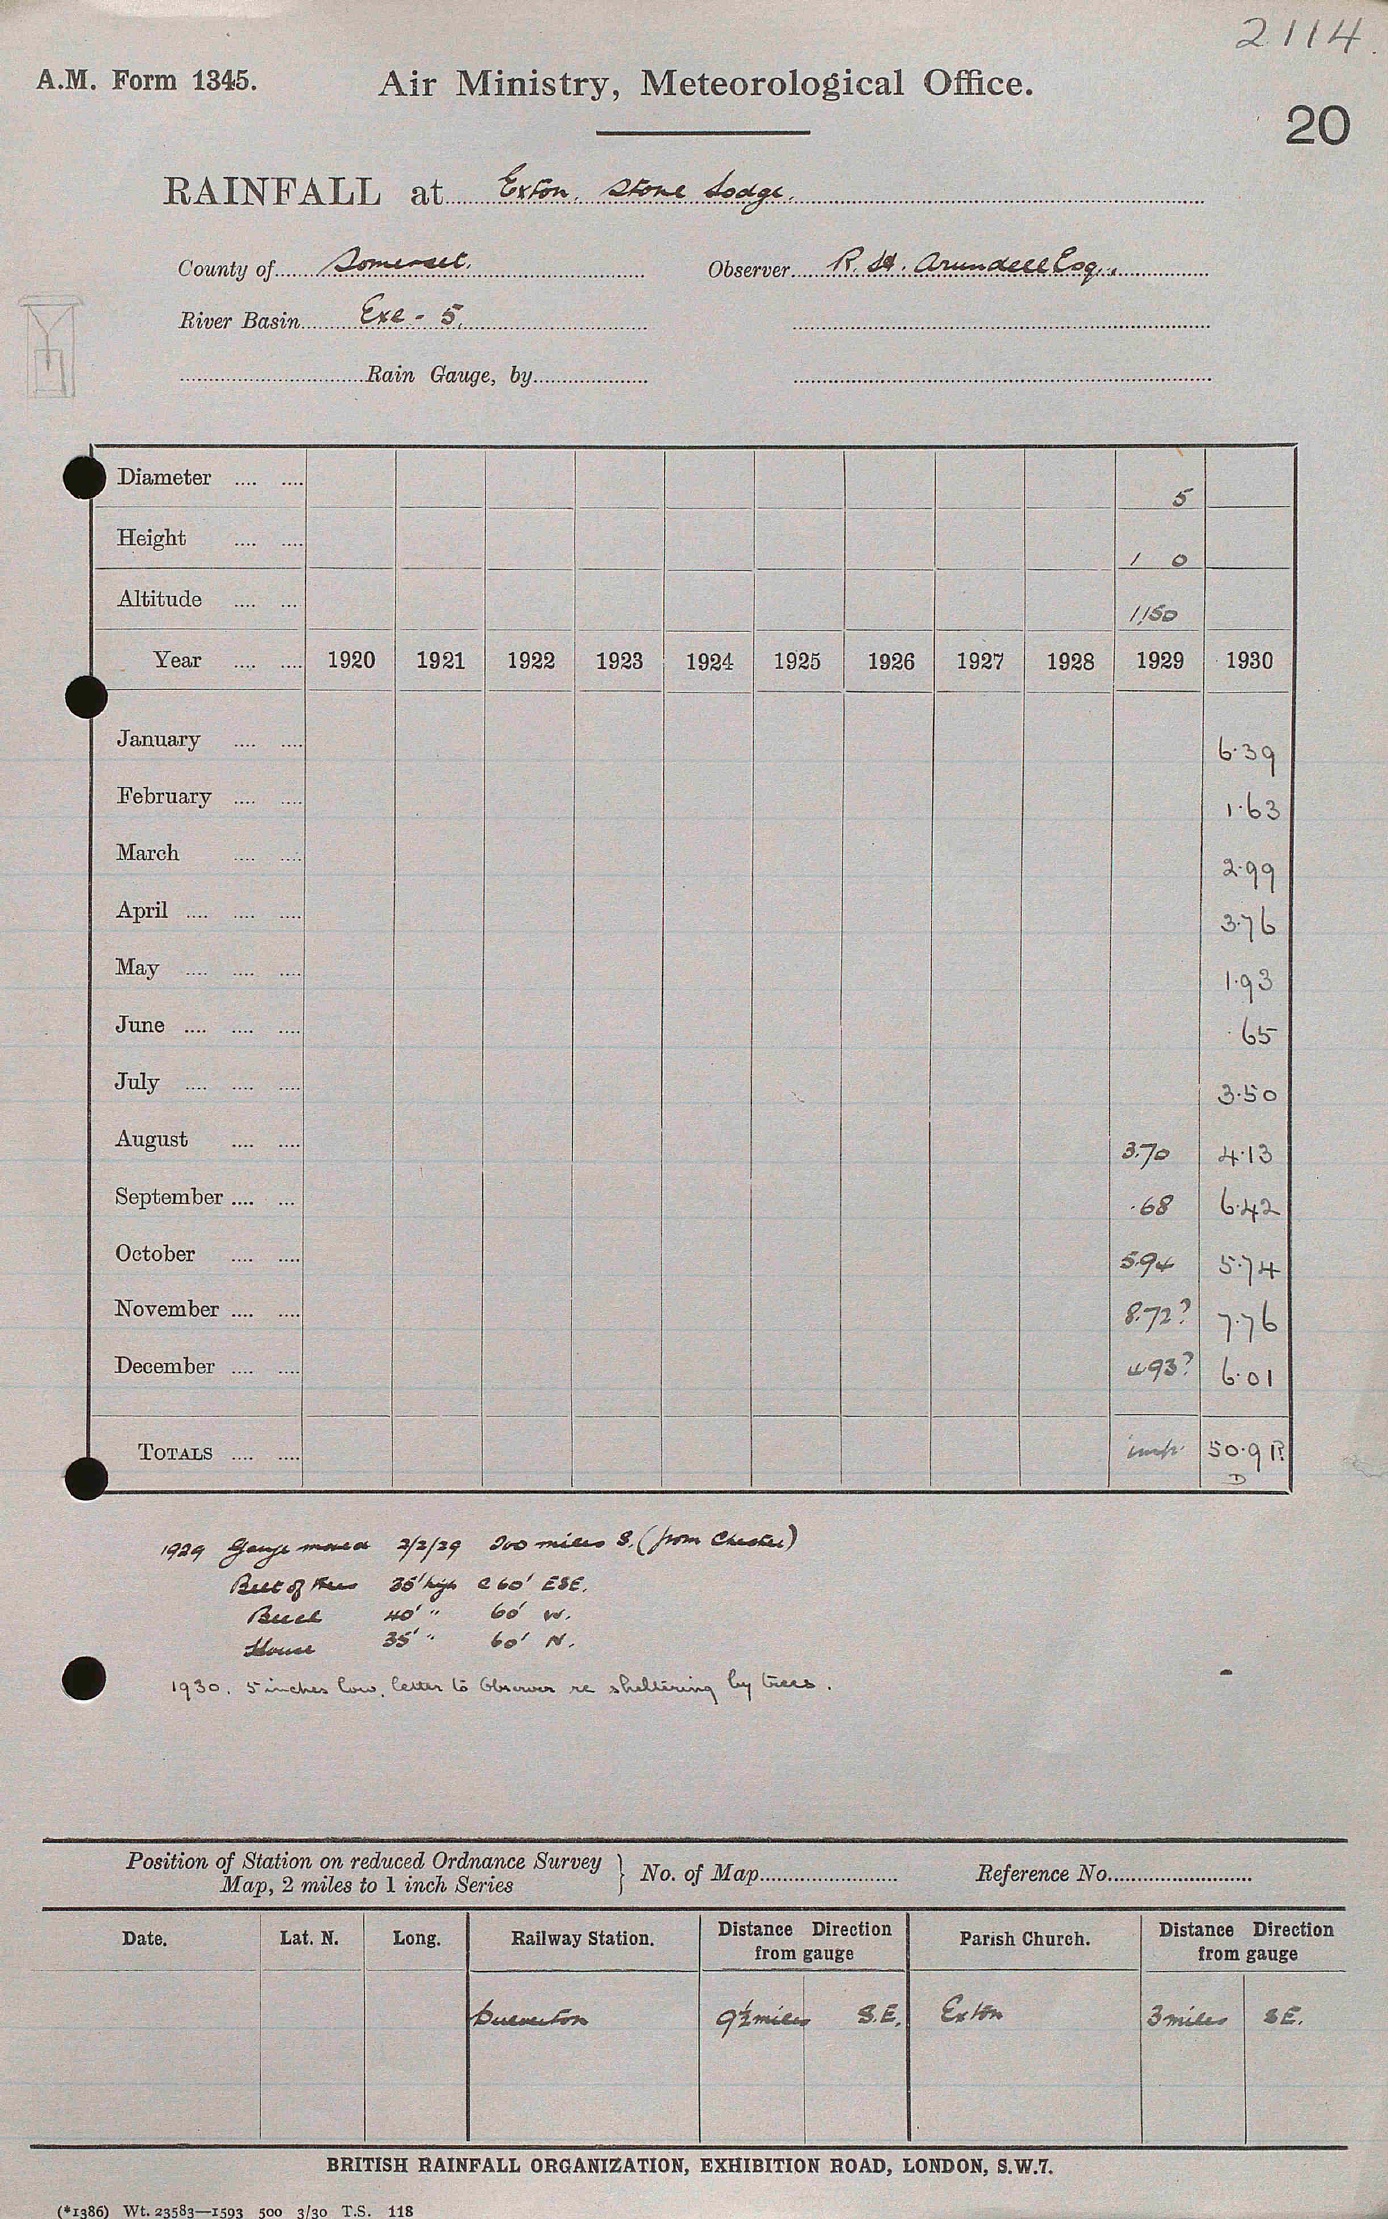 2114.
A.M. Form 1345. Air Ministry, Meteorological Office.
20
RAINFALL at Exton, Stone Lodge.
County of Somerset. Observer R. H. Arundell Esq.,
River Basin Exe - 5.
Rain Gauge, by
Diameter .... .... 5
Height .... .... 1 0
Altitude .... ... 1,150
Year .... .... 1920 1921 1922 1923 1924 1925 1926 1927 1928 1929 1930
January .... .... 6.39
February .... .... 1.63
March .... .... 2.99
April .... .... .... 3.76
May .... .... .... 1.93
June .... .... .... .65
July .... .... .... 3.50
August .... .... 3.70 4.13
September .... ... .68 6.42
October .... .... 5.94 5.74
November .... .... 8.72? 7.76
December .... .... 4.93? 6.01
TOTALS .... .... 50.91
D
1929 Gauge moved 2/2/29 200 miles S. (from Chester)
Belt of trees 35' high @ 60' ESE.
Beech 40' " 60' W.
House 35' " 60' N.
1930. 5 inches low, letter to Observer re sheltering by trees.
Position of Station on reduced Ordnance Survey Map, 2 miles to 1 inch Series } No. of Map Reference No.
Date. Lat. N. Long. Railway Station. Distance Direction from gauge Parish Church. Distance Direction from gauge
Dulverton 9½ miles S.E. Exton 3 miles SE.
BRITISH RAINFALL ORGANIZATION, EXHIBITION ROAD, LONDON, S.W.7.
(*1386) Wt. 23583—1593 500 3/30 T.S. 118